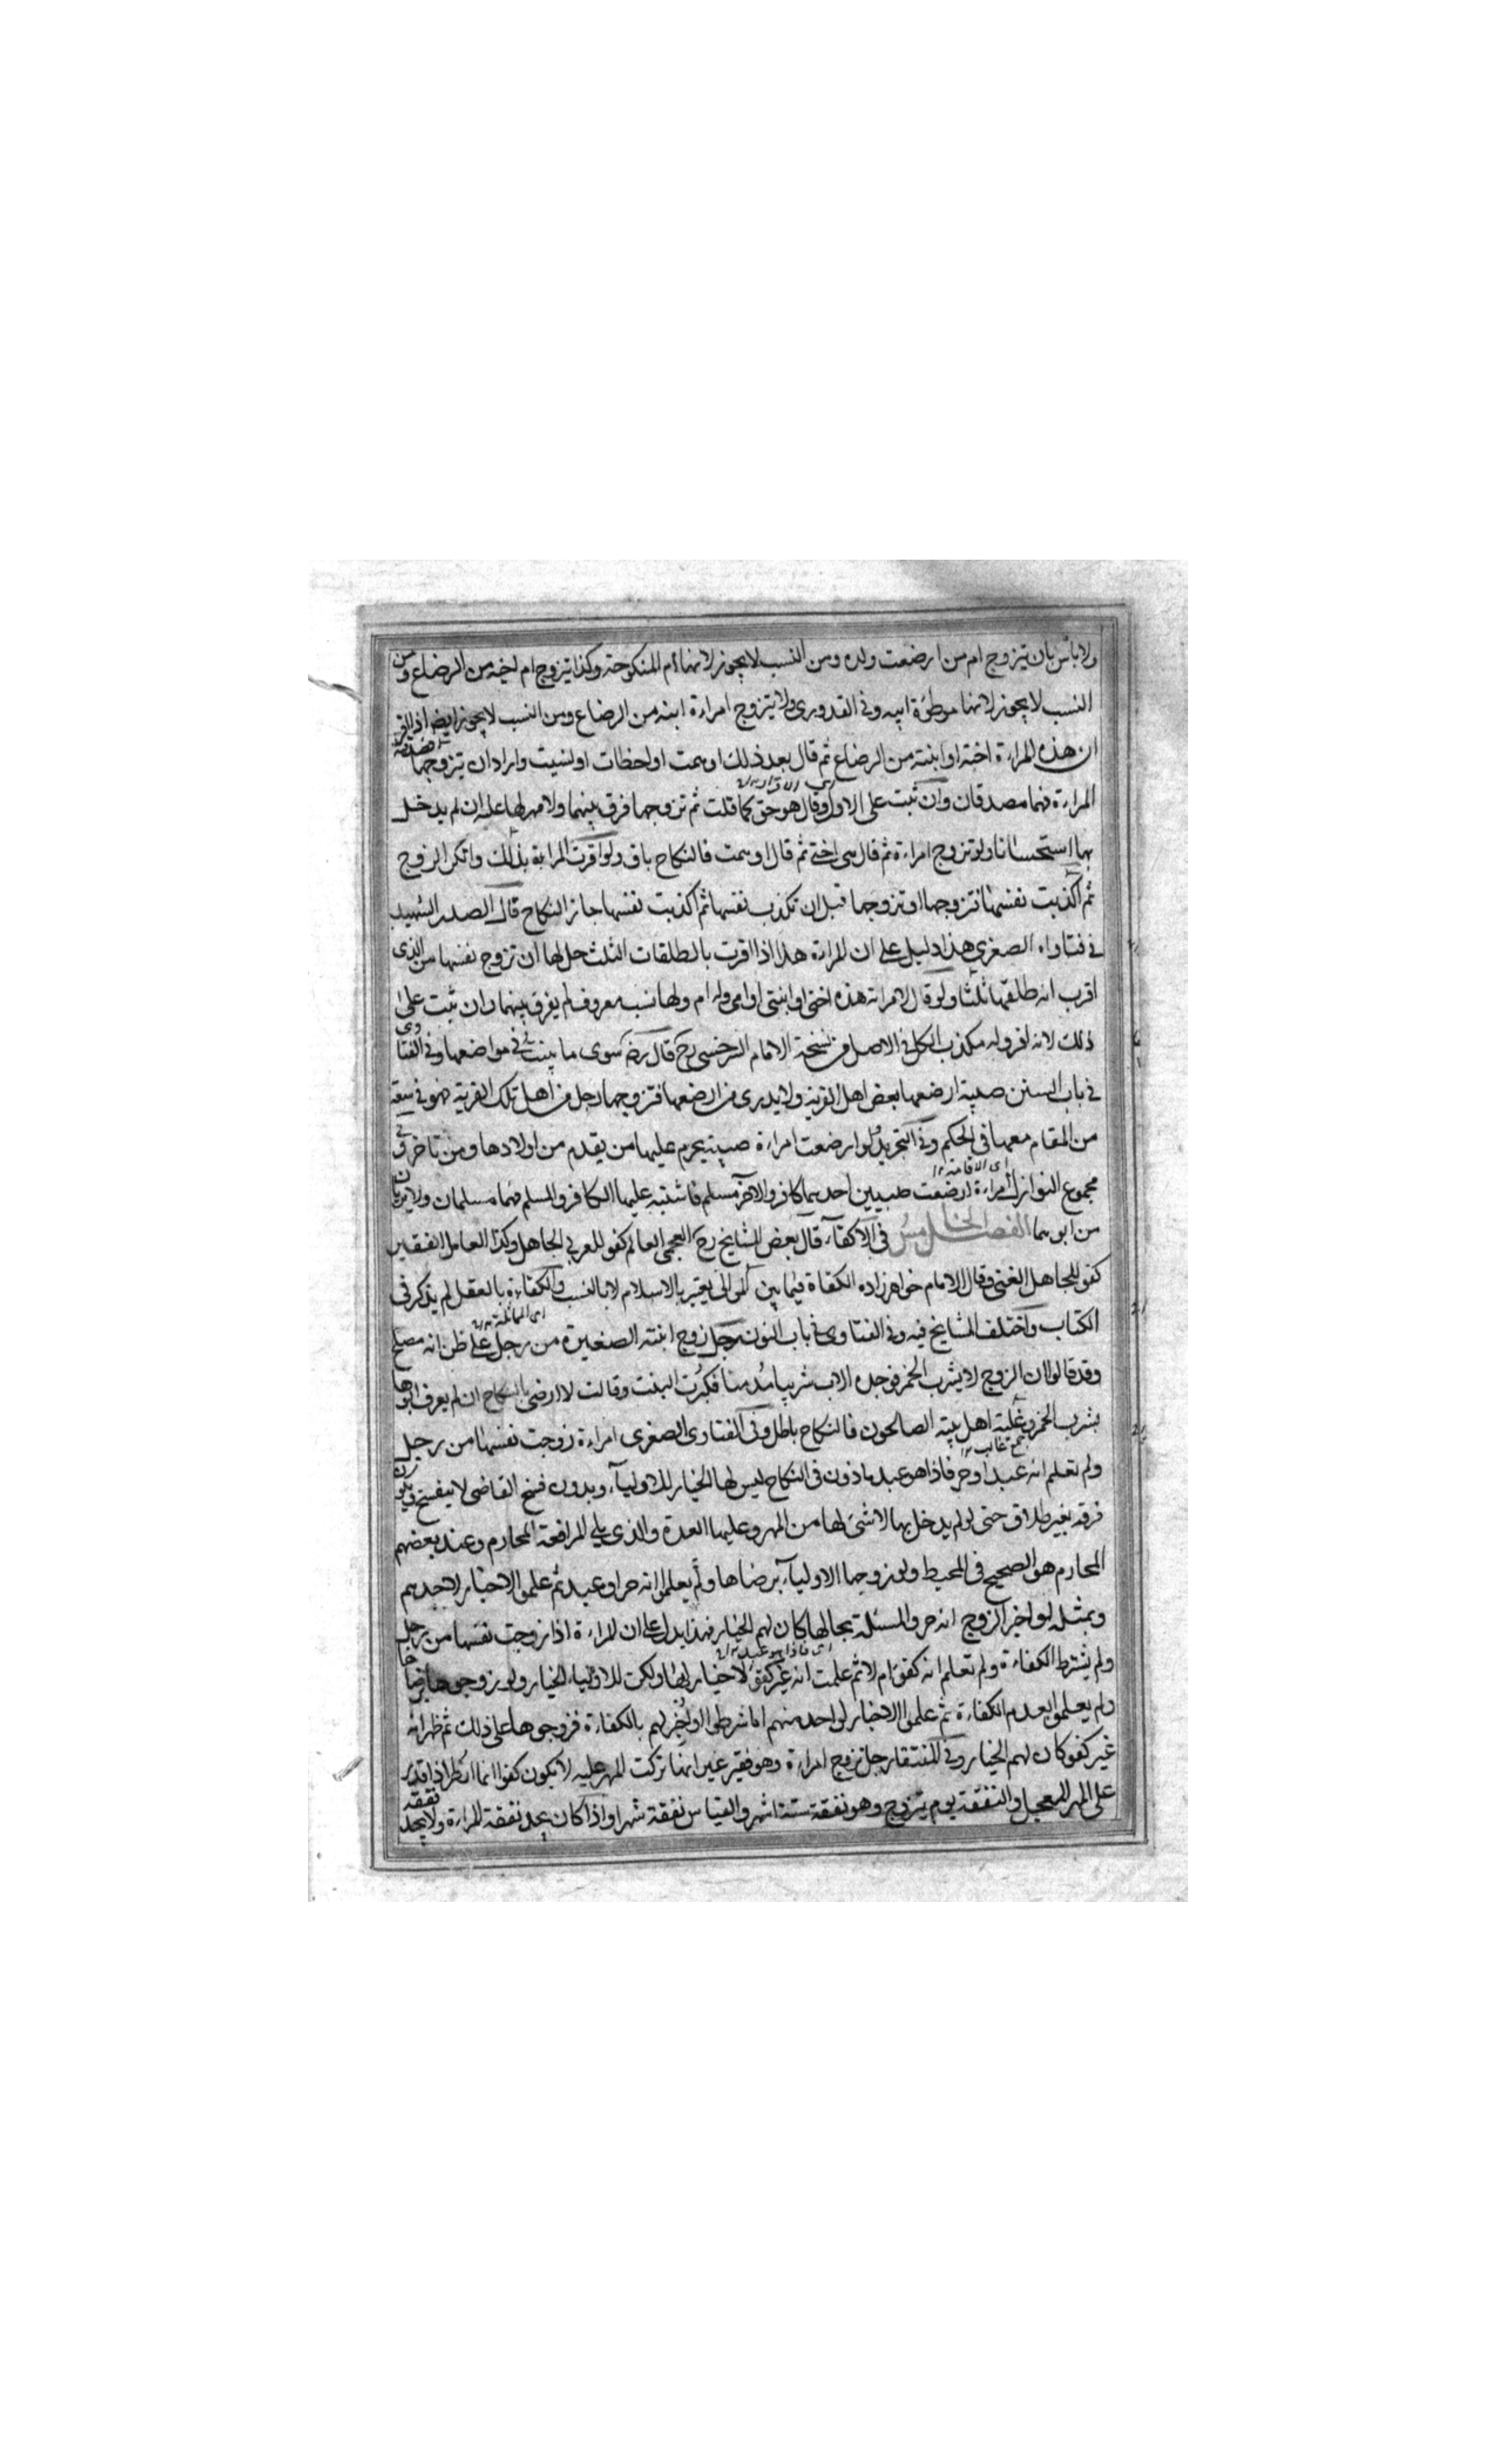 ولا باس بان يتزوج ام من ارضعت ولده ومن النسب لا يجوز لانها ام المنكوحة وكذا يتزوج ام اخيه من الرضاع ومن
النسب لا يجوز لانها موطؤة ابيه وفي القدوري ولا يتزوج امراءة ابنه من الرضاع ومن النسب لا يجوز ايضا اذا اقر
ان هذه المراءة اخته او ابنته من الرضاع ثم قال بعد ذلك اوهمت او اخطات او نسيت واراد ان يتزوجها وصدقته
اى الاقرار ١٢
المراءة فهما مصدقان وان ثبت على الاول وقال هو حق كما قلت ثم تزوجها فرق بينهما ولا مهر لها عليه ان لم يدخل
بها استحسانا ولو تزوج امراءة ثم قال هي اختي ثم قال اوهمت فالنكاح باق ولو اقرت المراءة بذلك وانكر الزوج
ثم اكذبت نفسها فتزوجها او تزوجها قبل ان تكذب نفسها ثم اكذبت نفسها جاز النكاح قال الصدر الشهيد
في فتاواه الصغرى هذا دليل على ان المراءة هذا اذا اقرت بالطلقات الثلث حل لها ان تزوج نفسها من الذى
اقرب انه طلقها ثلثا ولو قال لامراته هذه اختي او ابنتي او امي وله ام ولها نسب معروف لم يفرق بينهما وان ثبت على
ذلك لانه مكذب الكل في الاصل من نسخة الامام السرخسي رح قال رض سوى ما بينت في مواضعها وفي الفتاوى
في باب السنن صبية ارضعها بعض اهل القرية ولا يدرى من ارضعها فتزوجها رجل من اهل تلك القرية فهو في سعة
من المقام معها في الحكم وفي التجريد لو ارضعت امراءة صبية يحرم عليها من يقدم من اولادها ومن تاخر وفي
اى الاقامة ١٢
مجموع النوازل امراءة ارضعت صبيين احدهما كافر والآخر مسلم فاشتبه عليها الكافر والمسلم فهما مسلمان ولا يرثان
من ابويهما الفصل الخامس في الاكفاء قال بعض المشايخ رح العجمي العالم كفو للعربي الجاهل وكذا العالم الفقير
كفو للجاهل الغني وقال الامام خواهر زاده الكفاة فيما بين الموالى يعتبر بالاسلام لا بالنسب والكفاءة بالعقل لم يذكر في
الكتاب واختلف المشايخ فيه وفي الفتاوى في باب النون رجل زوج ابنته الصغيرة من رجل على ظن انه مصلح
وقد قالوا ان الزوج لا يشرب الخمر فوجده الاب شريبا مدمنا فكبرت البنت وقالت لا ارضى بالنكاح ان لم يعرف ابوها
بشرب الخمر وغلبة اهل بيته الصالحون فالنكاح باطل وفي الفتاوى الصغرى امراءة زوجت نفسها من رجل
ولم تعلم انه عبد او حر فاذا هو عبد ماذون في النكاح ليس لها الخيار للاولياء وبدون فسخ القاضى لا ينفسخ ويكون
فرقة بغير طلاق حتى لو لم يدخل بها لا شئ لها من المهر وعليها العدة والذى يلي المرافعة المحارم وعند بعضهم
المحارم هو الصحيح في المحيط ولو زوجها الاولياء برضاها ولم يعلموا انه حر او عبد ثم علموا لا خيار لاحدهم
وبمثله لو اخبر الزوج انه حر والمسئلة بحالها كان لهم الخيار فهذا يدل على ان المراءة اذا زوجت نفسها من رجل
اى فاذا هو عبد ١٢
ولم يشترط الكفاءة ولم تعلم انه كفو ام لا ثم علمت انه غير كفو لا خيار لها ولكن للاولياء الخيار ولو زوجوها برضاها
ولم يعلموا بعدم الكفاءة ثم علموا لا خيار لواحد منهم اما شرطوا او اخبرهم بالكفاءة فزوجوها على ذلك ثم ظهر انه
غير كفو كان لهم الخيار وفي المنتقا رجل تزوج امراءة وهو فقير غير انها تركت المهر عليه لا يكون كفوا انما انظر اذا قدر
على المهر المعجل والنفقة يوم يتزوج وهو نفقة ستة اشهر والقياس نفقة شهر واذا كان يجد نفقة المراءة ولا يجد نفقة